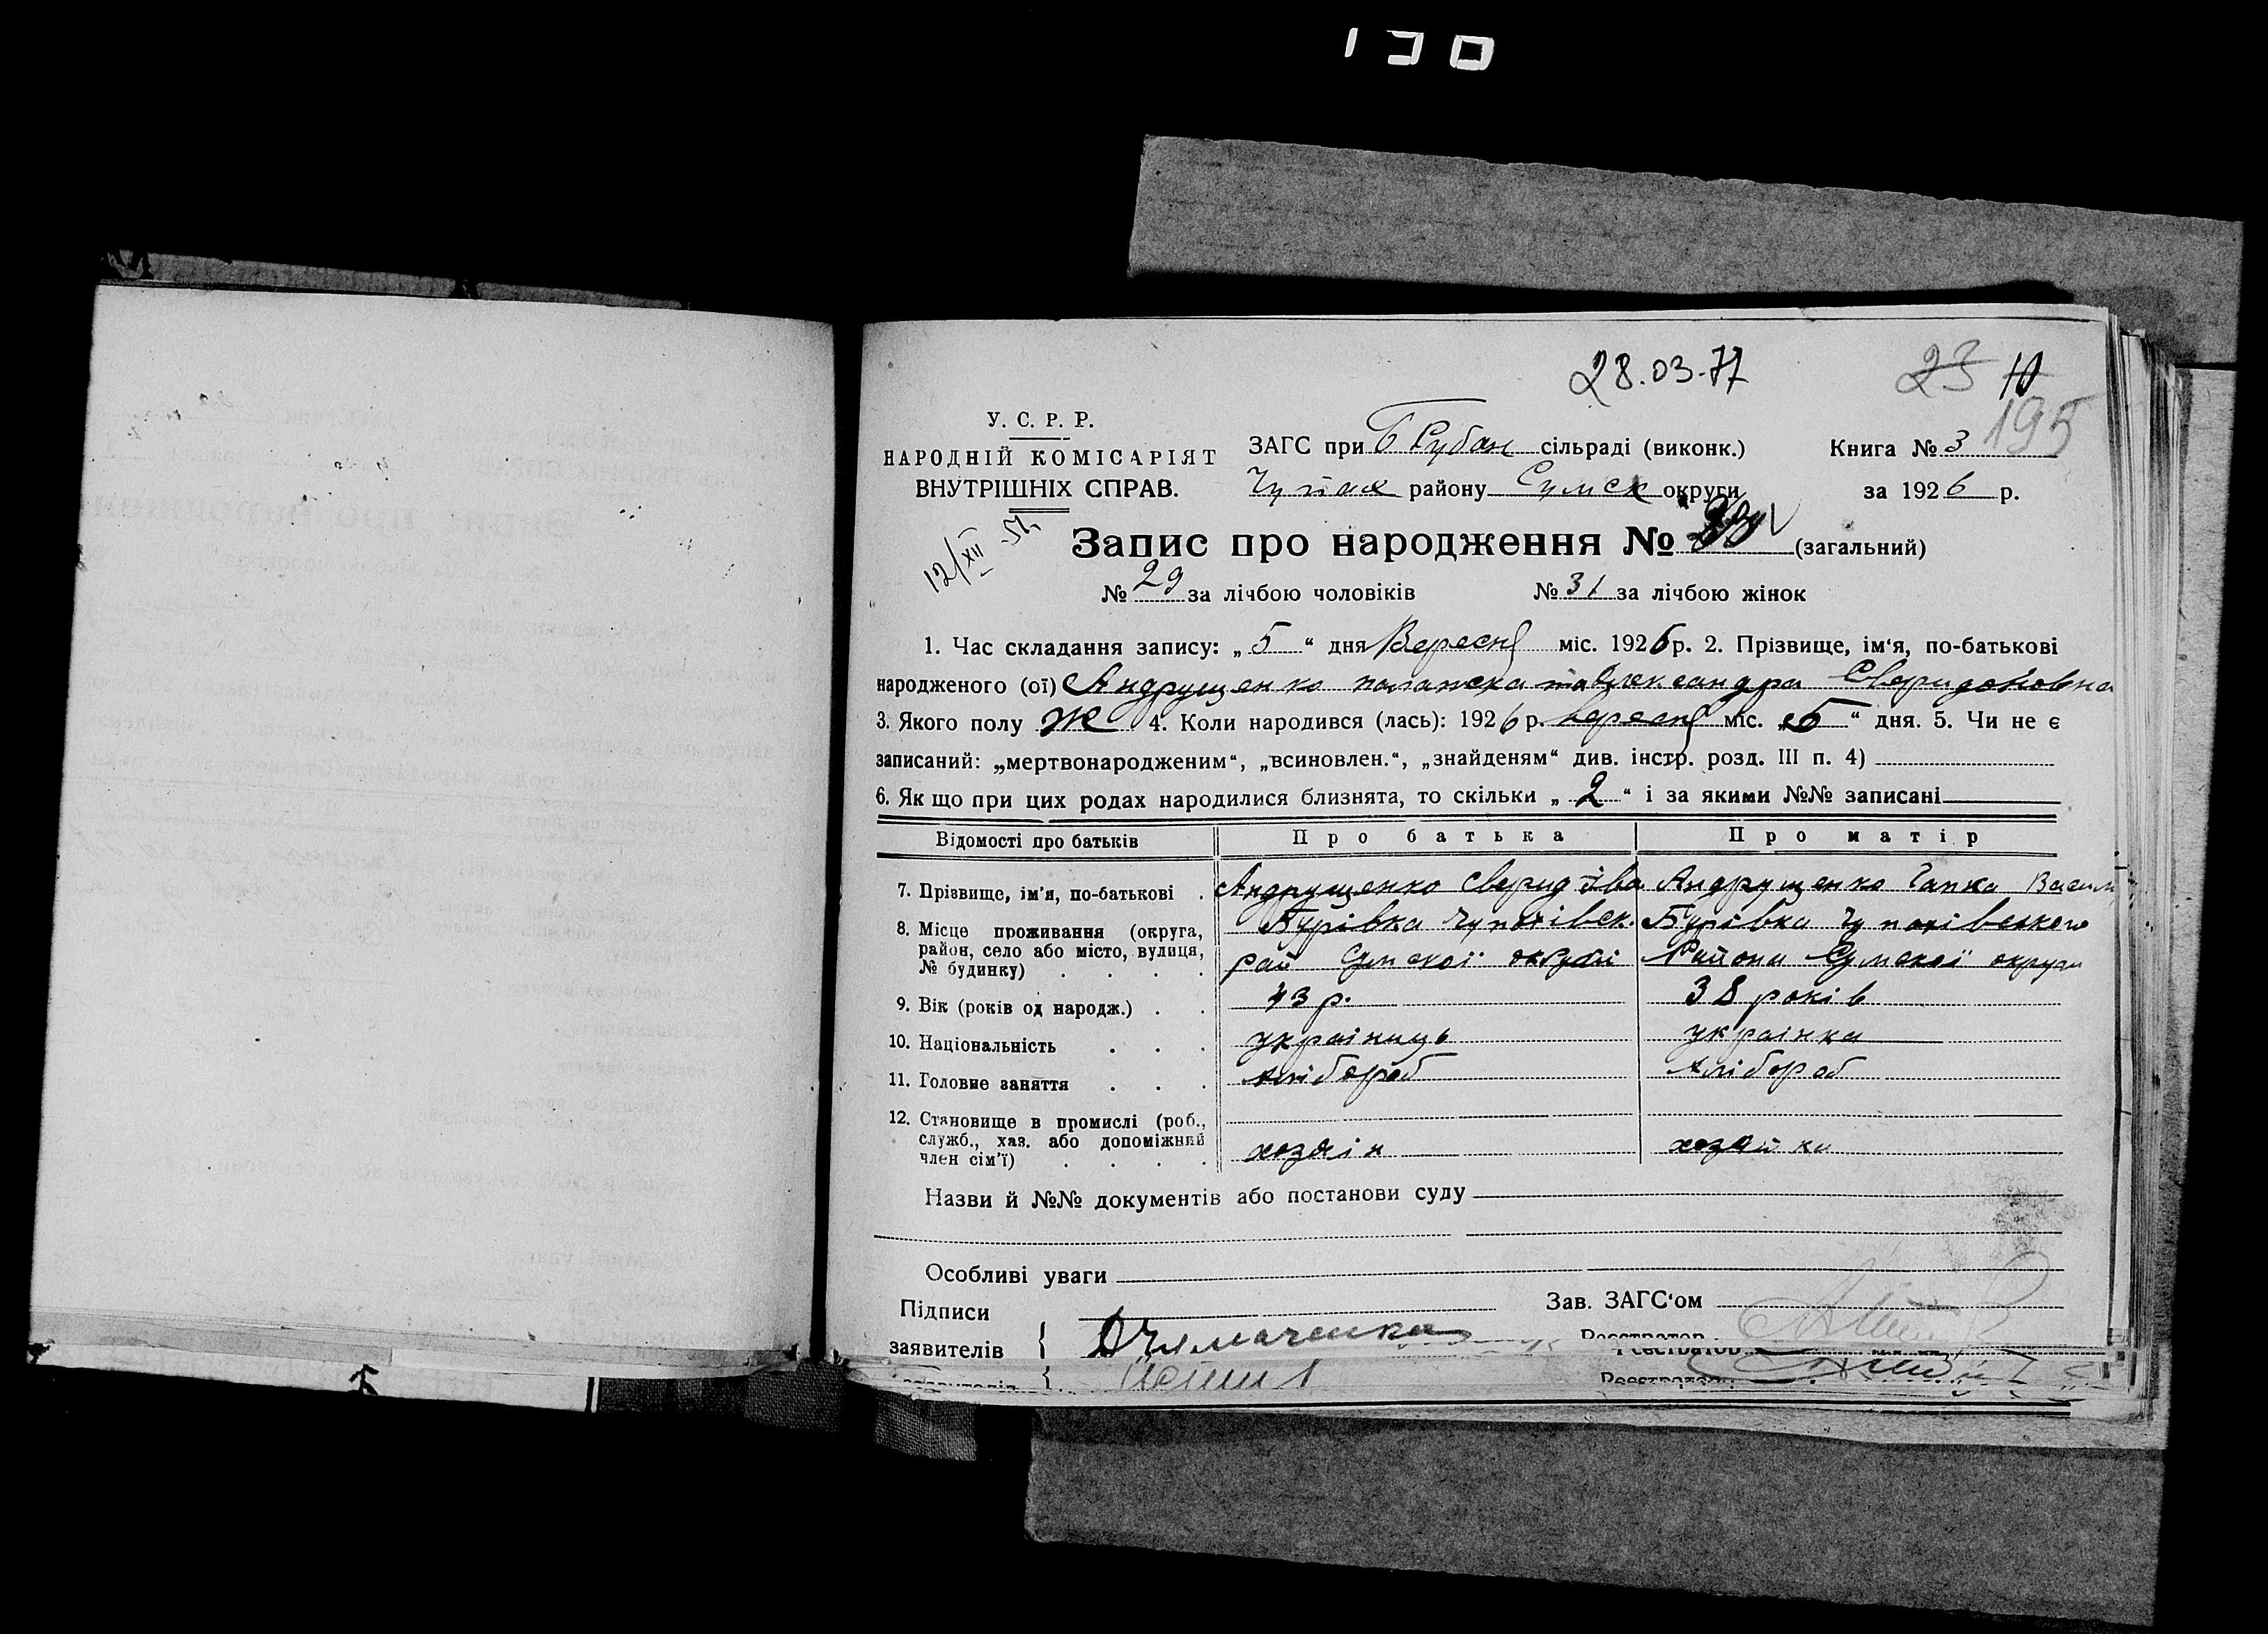 130
28.03.77
23 10
195
У. С. Р. Р.
НАРОДНІЙ КОМІСАРІЯТ
ВНУТРІШНІХ СПРАВ.
ЗАГС при Б Рубан сільраді (виконк.) Книга № 3
Чупах району Сумск округи за 1926 р.
12/XII-51.
Запис про народження № (загальний)
№ 29 за лічбою чоловіків № 31 за лічбою жінок
1. Час складання запису: „5“ дня Вересня міс. 1926 р. 2. Прізвище, ім‘я, по-батькові
народженого (ої) Андрущенко палажка та Олександра Сверидоновна
3. Якого полу Ж 4. Коли народився (лась): 1926 р. вересня міс. „5“ дня. 5. Чи не є
записаний: „мертвонародженим“, „всиновлен.“, „знайденям“ див. інстр. розд. III п. 4)
6. Як що при цих родах народилися близнята, то скільки „2“ і за якими №№ записані
Відомості про батьків Про батька Про матір
7. Прізвище, ім'я, по-батькові Андрущенко Сверид Андрущенко Гапка Васил
8. Місце проживання (округа, Бурівка чупахівск. Бурівка чупахівського
район, село або місто, вулиця, рай Сумскої округи Района Сумскої округи
№ будинку)
9. Вік (років од народж.) 43 р. 38 років
10. Національність українць українка
11. Головне заняття хлібороб хлібороб
12. Становище в промислі (роб.,
служб., хаз. або допоміжний
член сім'ї) хозяін хозяйка
Назви й №№ документів або постанови суду
Особливі уваги
Підписи Зав. ЗАГС‘ом
заявителів Реєстратор
Реєстратор
заявителів Реєстратор